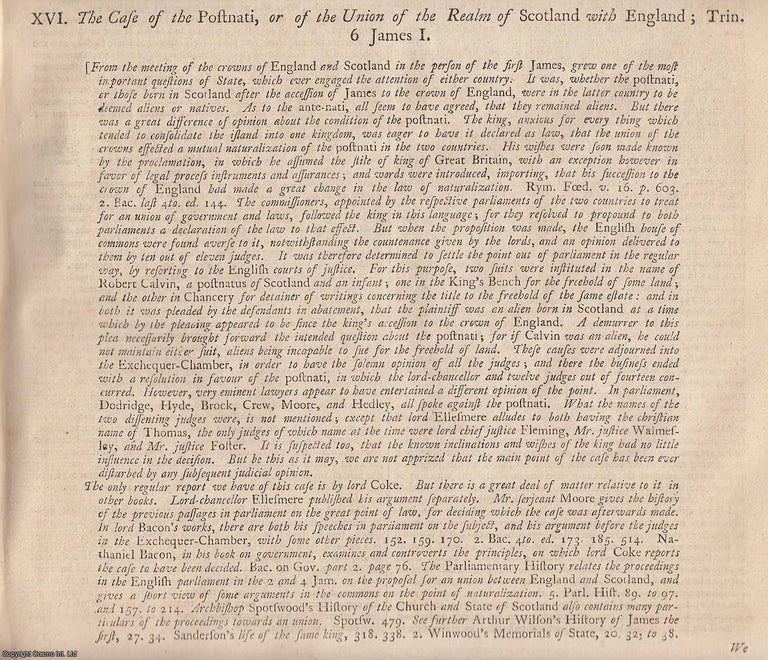 XVI. The Caſe of the Poſtnati, or of the Union of the Realm of Scotland with England; Trin.
6 James I.
[From the meeting of the crowns of England and Scotland in the perſon of the firſt James, grew one of the moſt
important queſtions of State, which ever engaged the attention of either country. It was, whether the poſtnati,
or thoſe born in Scotland after the acceſſion of James to the crown of England, were in the latter country to be
deemed aliens or natives. As to the ante-nati, all ſeem to have agreed, that they remained aliens. But there
was a great difference of opinion about the condition of the poſtnati. The king, anxious for every thing which
tended to conſolidate the iſland into one kingdom, was eager to have it declared as law, that the union of the
crowns effected a mutual naturalization of the poſtnati in the two countries. His wiſhes were ſoon made known
by the proclamation, in which he aſſumed the ſtile of king of Great Britain, with an exception however in
favor of legal proceſs inſtruments and aſſurances; and words were introduced, importing, that his ſucceſſion to the
crown of England had made a great change in the law of naturalization. Rym. Fœd. v. 16. p. 603.
2. Bac. laſt 4to. ed. 144. The commiſſioners, appointed by the reſpective parliaments of the two countries to treat
for an union of government and laws, followed the king in this language; for they reſolved to propound to both
parliaments a declaration of the law to that effect. But when the propoſition was made, the Engliſh houſe of
commons were found averſe to it, notwithſtanding the countenance given by the lords, and an opinion delivered to
them by ten out of eleven judges. It was therefore determined to ſettle the point out of parliament in the regular
way, by reſorting to the Engliſh courts of juſtice. For this purpoſe, two ſuits were inſtituted in the name of
Robert Calvin, a poſtnatus of Scotland and an infant; one in the King's Bench for the freehold of ſome land;
and the other in Chancery for detainer of writings concerning the title to the freehold of the ſame eſtate: and in
both it was pleaded by the defendants in abatement, that the plaintiff was an alien born in Scotland at a time
which by the pleading appeared to be ſince the king's acceſſion to the crown of England. A demurrer to this
plea neceſſarily brought forward the intended queſtion about the poſtnati; for if Calvin was an alien, he could
not maintain either ſuit, aliens being incapable to ſue for the freehold of land. Theſe cauſes were adjourned into
the Exchequer-Chamber, in order to have the ſolemn opinion of all the judges; and there the buſineſs ended
with a reſolution in favour of the poſtnati, in which the lord-chancellor and twelve judges out of fourteen con-
curred. However, very eminent lawyers appear to have entertained a different opinion of the point. In parliament,
Dodridge, Hyde, Brock, Crew, Moore, and Hedley, all ſpoke againſt the poſtnati. What the names of the
two diſſenting judges were, is not mentioned; except that lord Elleſmere alludes to both having the chriſtian
name of Thomas, the only judges of which name at the time were lord chief juſtice Fleming, Mr. juſtice Walmeſ-
ley, and Mr. juſtice Foſter. It is ſuſpected too, that the known inclinations and wiſhes of the king had no little
influence in the deciſion. But be this as it may, we are not apprized that the main point of the caſe has been ever
diſturbed by any ſubſequent judicial opinion.
The only regular report we have of this caſe is by lord Coke. But there is a great deal of matter relative to it in
other books. Lord-chancellor Elleſmere publiſhed his argument ſeparately. Mr. ſerjeant Moore gives the hiſtory
of the previous paſſages in parliament on the great point of law, for deciding which the caſe was afterwards made.
In lord Bacon's works, there are both his ſpeeches in parliament on the ſubject, and his argument before the judges
in the Exchequer-Chamber, with ſome other pieces. 152. 159. 170. 2. Bac. 4to. ed. 173. 185. 514. Na-
thaniel Bacon, in his book on government, examines and controverts the principles, on which lord Coke reports
the caſe to have been decided. Bac. on Gov. part 2. page 76. The Parliamentary Hiſtory relates the proceedings
in the Engliſh parliament in the 2 and 4 Jam. on the propoſal for an union between England and Scotland, and
gives a ſhort view of ſome arguments in the commons on the point of naturalization. 5. Parl. Hiſt. 89. to 97.
and 157. to 214. Archbiſhop Spotſwood's Hiſtory of the Church and State of Scotland alſo contains many par-
ticulars of the proceedings towards an union. Spotſw. 479. See further Arthur Wilſon's Hiſtory of James the
firſt, 27. 34. Sanderſon's life of the ſame king, 318. 338. 2. Winwood's Memorials of State, 20. 32; to 38.
We
Copyright © Cosmo Int. Ltd